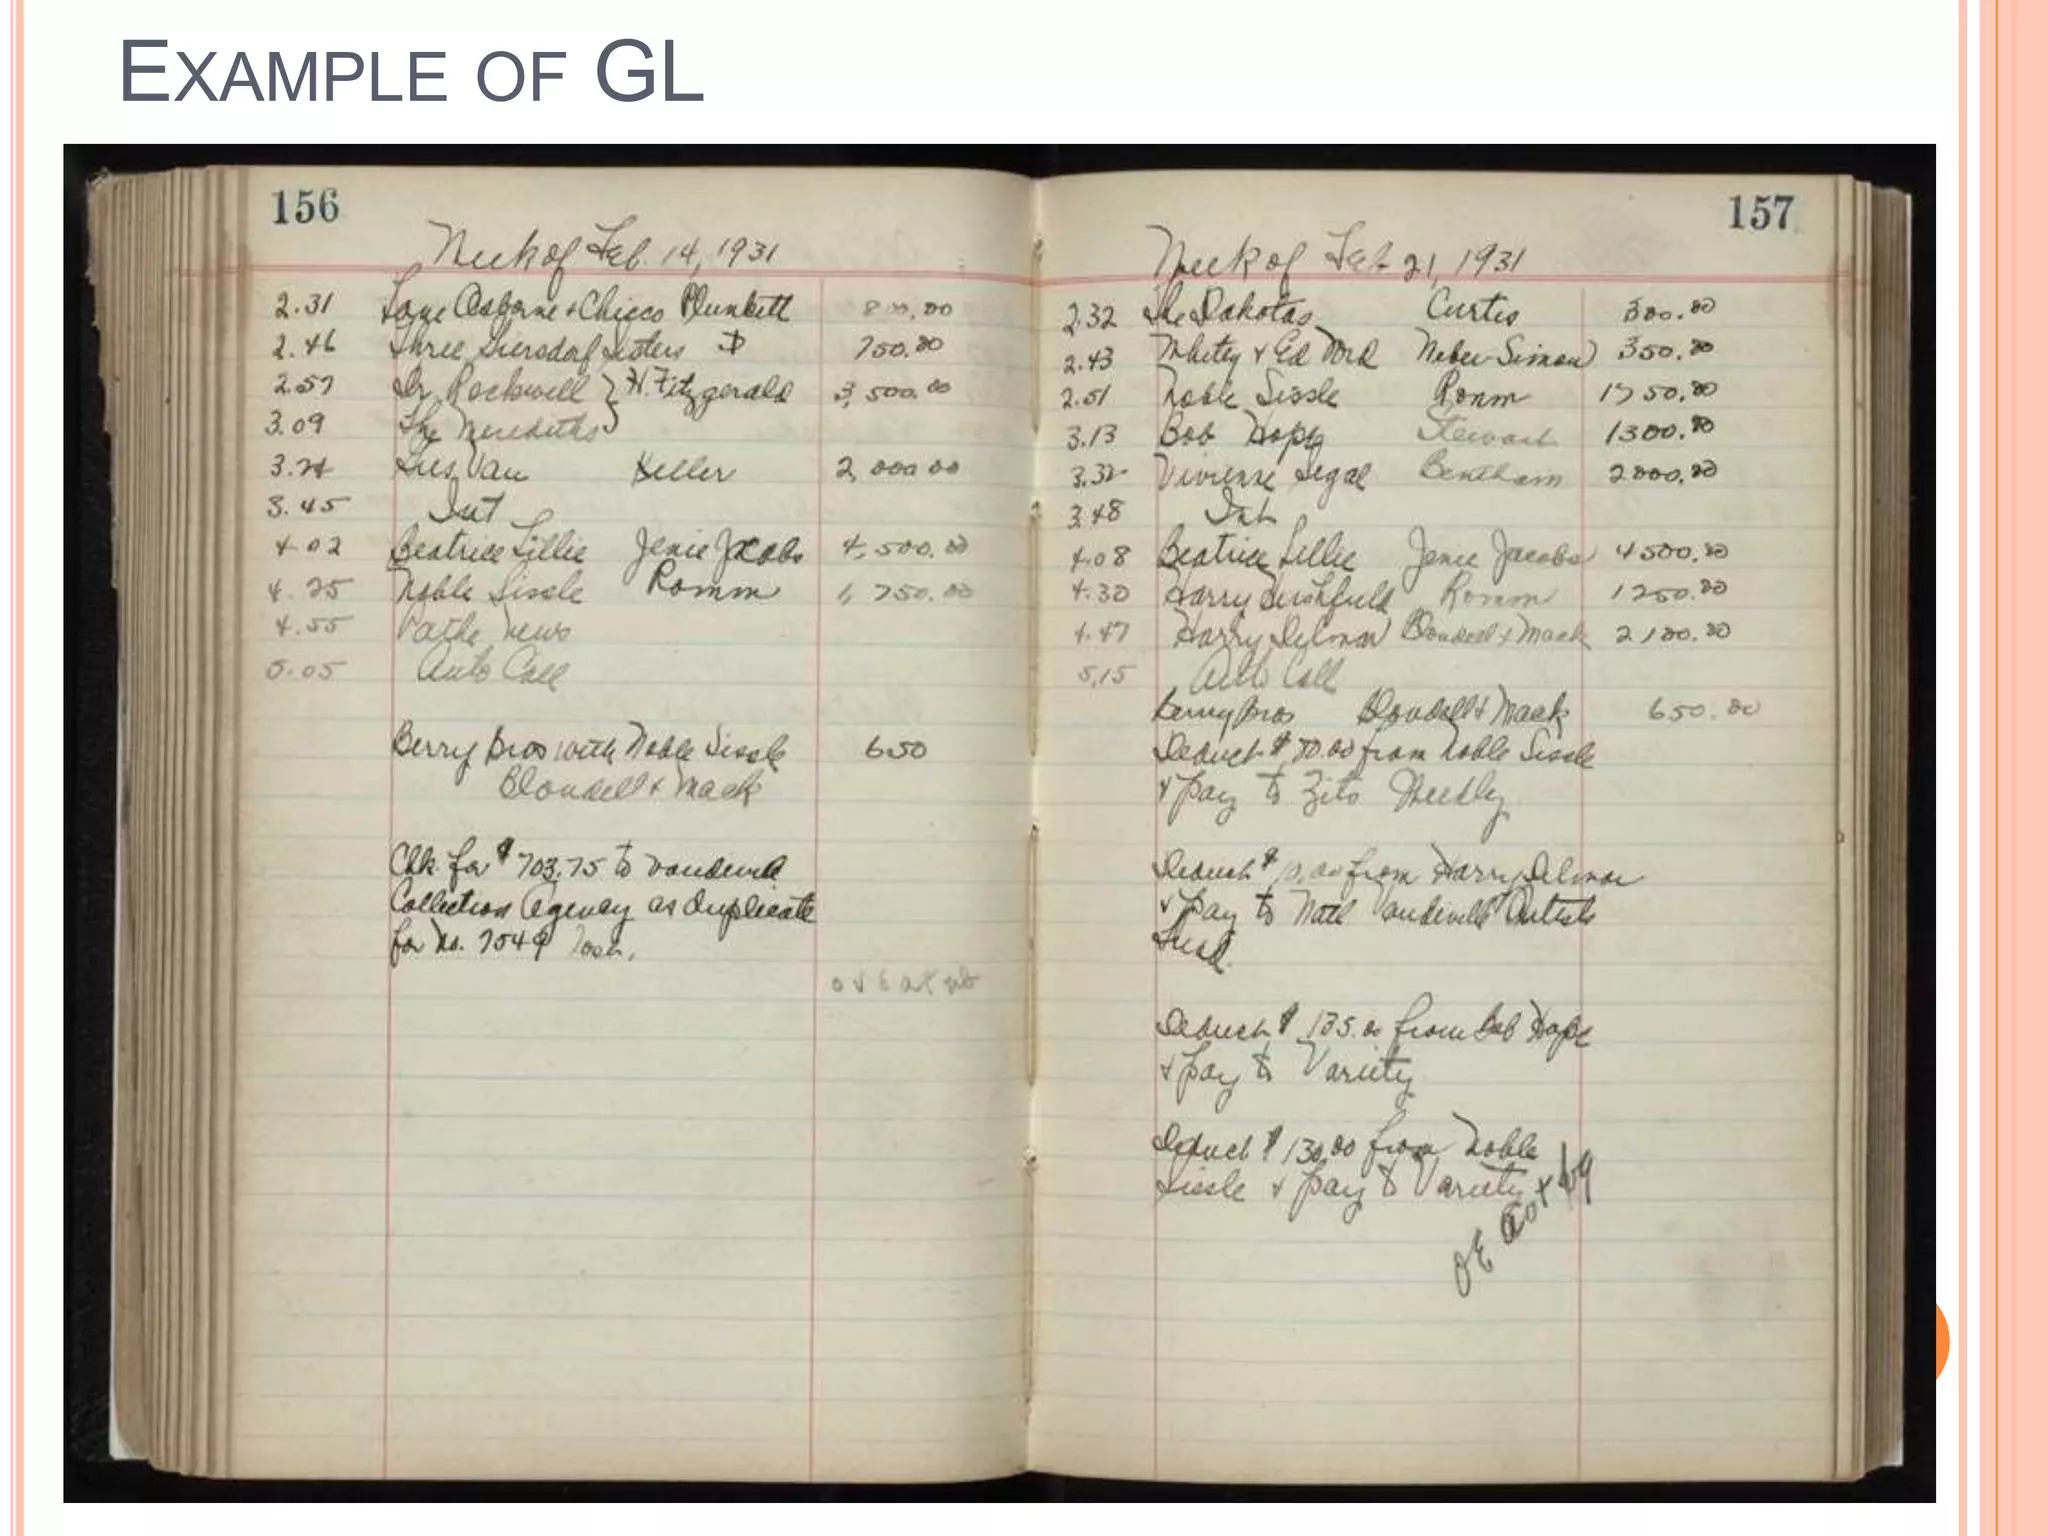 EXAMPLE OF GL
156
Week of Feb. 14, 1931
2.31 Osborne + Chicco Plunkett 800.00
2.46 Three Giersdorf Sisters D 750.00
2.57 Dr Rockwell } H. Fitzgerald 3,500.00
3.09 The Merediths
3.24 Gus Van Keller 2,000 00
3.45 Int
4 02 Beatrice Lillie Jenie Jacobs 4,500.00
4.25 Noble Sissle Romm 1,750.00
4.55 Pathe News
5.05 Auto Call
Berry Bros with Noble Sissle 650
Blondell + Mack
Chk. for $703.75 to Vaudeville
Collection Agency as duplicate
for No. 7549
157
Week of Feb 21, 1931
2.32 The Dakotas Curtis 300.00
2.43 Whitey + Ed Ford Weber-Simon 350.00
2.51 Noble Sissle Romm 1750.00
3.13 Bob Hope Stewart 1300.00
3.32 Vivienne Segal Bentham 2000.00
3.48 Int
4.08 Beatrice Lillie Jenie Jacobs 4500.00
4.30 Harry Hershfield Romm 1250.00
4.47 Harry Delmar Blondell + Mack 2100.00
5.15 Auto Call
Berry Bros Blondell + Mack 650.00
Deduct $ from Noble Sissle
+ pay to Zito Weekly
Deduct $10.00 from Harry Delmar
+ pay to Natl Vaudeville Artists
Fund.
Deduct $135.00 from Bob Hope
+ pay to Variety
Deduct $130.00 from Noble
Sissle + pay to Variety
OK